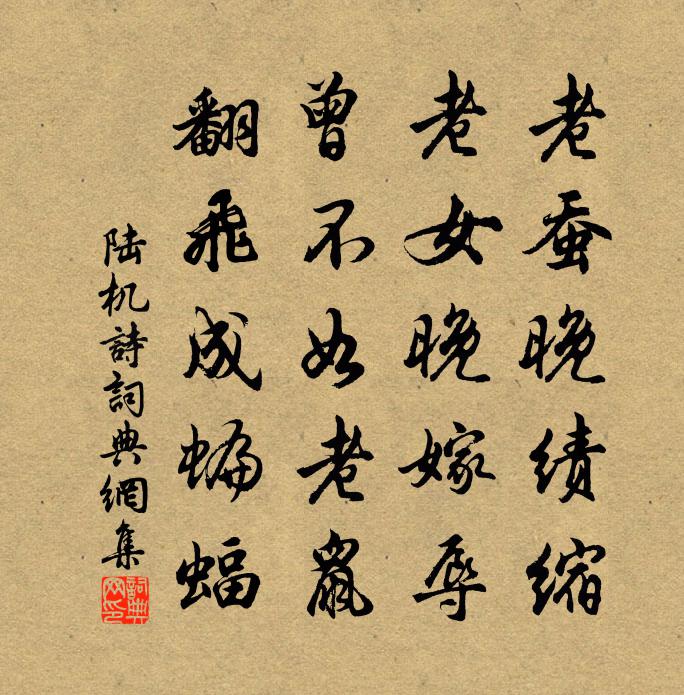 老蚕晚绩缩
老女晚嫁辱
曾不如老鼠
翻飛成蝙蝠
陆机詩詞典網集
詞典网印